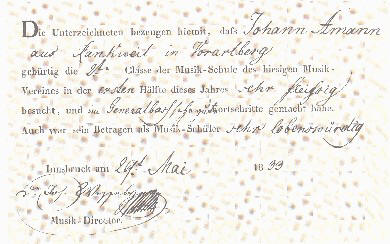 Die Unterzeichneten bezeugen hiemit, daſs Johann Amann
aus Rankweil in Vorarlberg
gebürtig die 2te Classe der Musik-Schule des hiesigen Musik-
Vereines in der ersten Hälfte dieses Jahres sehr fleiſsig
besucht, und im Generalbass sehr gute Fortschritte gemacht habe.
Auch war sein Betragen als Musik-Schüler sehr lobenswürdig
Innsbruck am 29ten Mai 1833
Musik-Director.